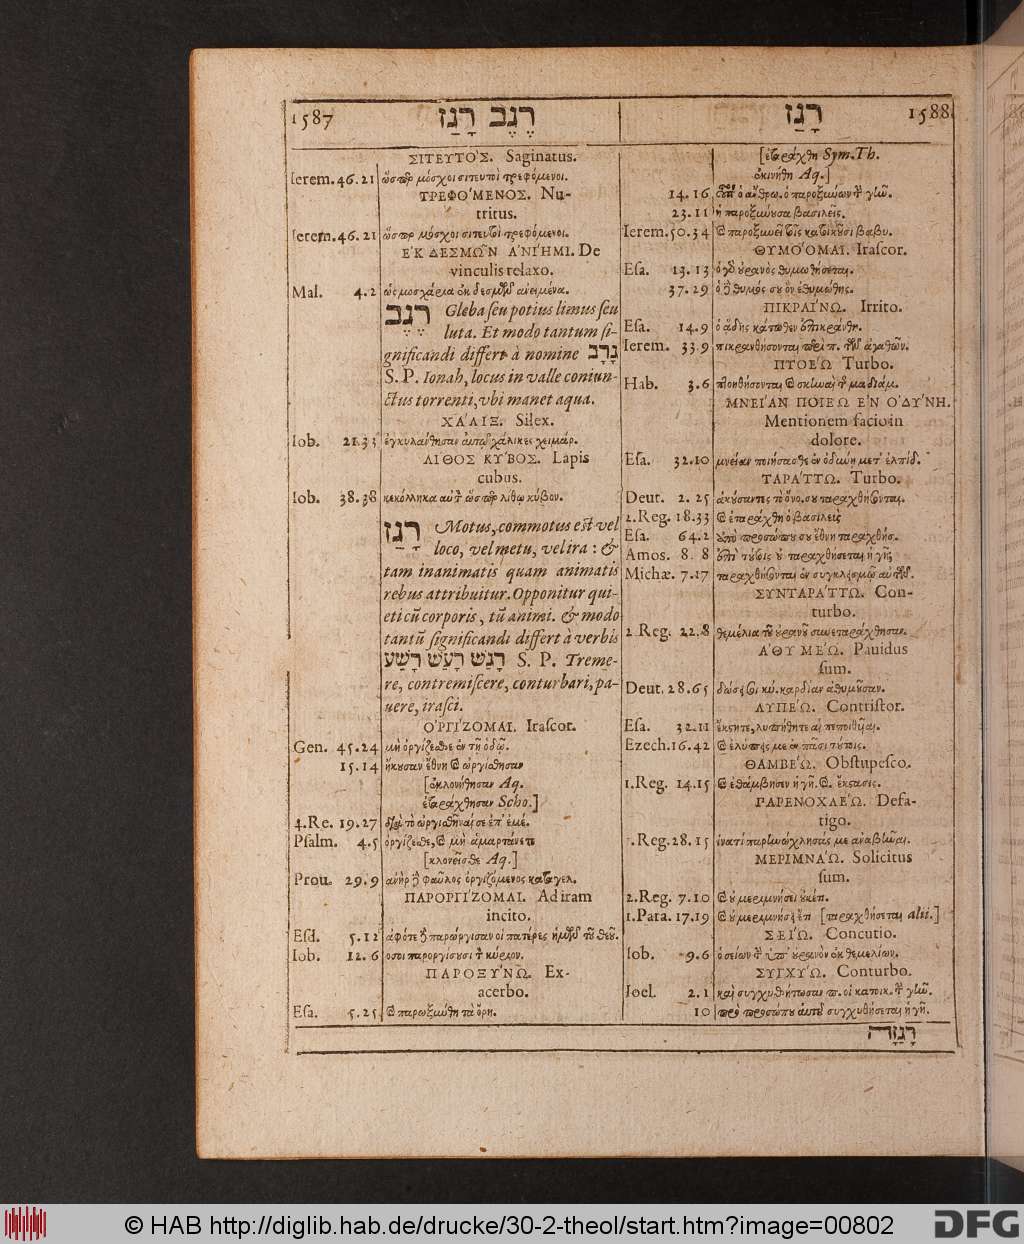 1587 רֶגֶב רָגַז
ΣΙΤΕΥΤΟ'Σ. Saginatus.
Ierem. 46. 21 ὥσπερ μόσχοι σιτευτοὶ τρεφόμενοι.
ΤΡΕΦΟ'ΜΕΝΟΣ. Nu-
tritus.
Ierem. 46. 21 ὥσπερ μόσχοι σιτευτοὶ τρεφόμενοι.
ἘΚ ΔΕΣΜΩ͂Ν ἈΝΙΉΜΙ. De
vinculis relaxo.
Mal. 4. 2 ὡς μοσχάρια ἐκ δεσμῶν ἀνειμένα.
רֶגֶב Gleba seu potius limus seu
luta. Et modo tantum si-
gnificandi differt à nomine גָרָב
S. P. Ionah, locus in valle coniun-
ctus torrenti, vbi manet aqua.
ΧΆΛΙΞ. Silex.
Iob. 21. 33 ἐγκυλανθησαν αὐτῷ χάλικες χειμάρ.
ΛΙΘΟΣ ΚΥ'ΒΟΣ. Lapis
cubus.
Iob. 38. 38 κεκόλληκα αὐτὸν ὥσπερ λίθῳ κύβον.
רָגַז Motus, commotus est vel
loco, vel metu, vel ira: &
tam inanimatis quam animatis
rebus attribuitur. Opponitur qui-
eti cū corporis, tū animi. & modo
tantū significandi differt à verbis
רָגַשׁ רָעַשׁ רָשַׁע S. P. Treme-
re, contremiscere, conturbari, pa-
uere, irasci.
ὈΡΓΊΖΟΜΑΙ. Irascor.
Gen. 45. 24 μὴ ὀργίζεσθε ἐν τῇ ὁδῷ.
15. 14 ἤκουσαν ἔθνη καὶ ὠργίσθησαν
[ἐκλονήθησαν Aq.
ἐταράχθησαν Scho.]
4. Re. 19. 27 διὰ τὸ ὀργισθῆναί σε ἐπ' ἐμέ.
Psalm. 4. 5 ὀργίζεσθε, καὶ μὴ ἁμαρτάνετε
[κλονεῖσθε Aq.]
Prou. 29. 9 ἀνὴρ δὲ φαῦλος ὀργιζόμενος καταγελ.
ΠΑΡΟΡΓΊΖΟΜΑΙ. Ad iram
incito.
Esd. 5. 12 ἀφότε δὲ παρώργισαν οἱ πατέρες ἡμῶν τὸν θεόν.
Iob. 12. 6 ὅσοι παροργίσουσι τὸν κύριον.
ΠΑΡΟΞΎΝΩ. Ex-
acerbo.
Esa. 5. 25 καὶ παρωξύνθη τὰ ὄρη.
רָגַז 1588
[ἐταράχθη Sym. Th.
ἐκινήθη Aq.]
14. 16 οὗτος ὁ ἄνθρω. ὁ παροξύνων τὴν γῆν.
23. 11 ἡ παροξύνουσα βασιλεῖς.
Ierem. 50. 34 καὶ παροξυνεῖ τοῖς κατοικοῦσι βαβυ.
ΘΥΜΌΟΜΑΙ. Irascor.
Esa. 13. 13 ὁ γὰρ οὐρανὸς θυμωθήσεται.
37. 29 ὁ δὲ θυμός σου ὃν ἐθυμώθης.
ΠΙΚΡΑΊΝΩ. Irrito.
Esa. 14. 9 ὁ ᾅδης κάτωθεν ἐπικράνθη.
Ierem. 33. 9 πικρανθήσονται περὶ π. τῶν ἀγαθῶν.
ΠΤΟΈΩ Turbo.
Hab. 3. 6 πτοηθήσονται καὶ σκηναὶ γῆ μαδιάμ.
ΜΝΕΊΑΝ ΠΟΙΕΩ ἘΝ ὈΔΎΝΗ.
Mentionem facio in
dolore.
Esa. 32. 10 μνείαν ποιήσασθε ἐν ὀδύνῃ μετ' ἐλπίδ.
ΤΑΡΆΤΤΩ. Turbo.
Deut. 2. 25 ἀκούσαντες τὸ ὄνο. σου ταραχθήσονται.
2. Reg. 18. 33 καὶ ἐταράχθη ὁ βασιλεὺς
Esa. 64. 2 ἀπὸ προσώπου σου ἔθνη ταραχθήσ.
Amos. 8. 8 ἐπὶ τούτοις οὐ ταραχθήσεται ἡ γῆ;
Michæ. 7. 17 ταραχθήσονται ἐν συγκλεισμῷ αὐτῶν.
ΣΥΝΤΑΡΆΤΤΩ. Con-
turbo.
2. Reg. 22. 8 θεμέλια τοῦ οὐρανοῦ συνεταράχθησαν.
ἈΘΥΜΕΏ. Pauidus
sum.
Deut. 28. 65 δώσει σοι κύ. καρδίαν ἀθυμοῦσαν.
ΛΥΠΕΏ. Contristor.
Esa. 32. 11 ἔκστητε, λυπήθητε αἱ πεποιθυῖαι.
Ezech. 16. 42 καὶ ἐλύπεις με ἐν πᾶσι τούτοις.
ΘΑΜΒΕΏ. Obstupesco.
1. Reg. 14. 15 καὶ ἐθάμβησεν ἡ γῆ. καὶ. ἔκστασις.
ΠΑΡΕΝΟΧΛΕΏ. Defa-
tigo.
1. Reg. 28. 15 ἱνατί παρηνώχλησάς με ἀναβῆναι.
ΜΕΡΙΜΝΆΩ. Solicitus
sum.
2. Reg. 7. 10 καὶ οὐ μεριμνήσει οὐκέτ.
1. Para. 17. 19 καὶ οὐ μεριμνήσει ἔτι [ταραχθήσεται alii.]
ΣΕΊΩ. Concutio.
Iob. 9. 6 ὁ σείων τὴν ὑπ' οὐρανὸν ἐκ θεμελίων.
ΣΥΓΧΥΏ. Conturbo.
Ioel. 2. 1 καὶ συγχυθήτωσαν π. οἱ κατοικ. τὴν γῆν.
10 πρὸ προσώπου αὐτοῦ συγχυθήσεται ἡ γῆ.
רָגְזָה
© HAB http://diglib.hab.de/drucke/30-2-theol/start.htm?image=00802
DFG